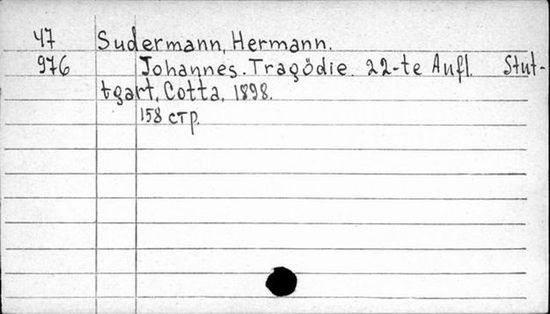 47 Sudermann, Hermann.
976 Johannes. Tragödie. 22-te Aufl. Stut-
tgart, Cotta, 1898.
158 стр.